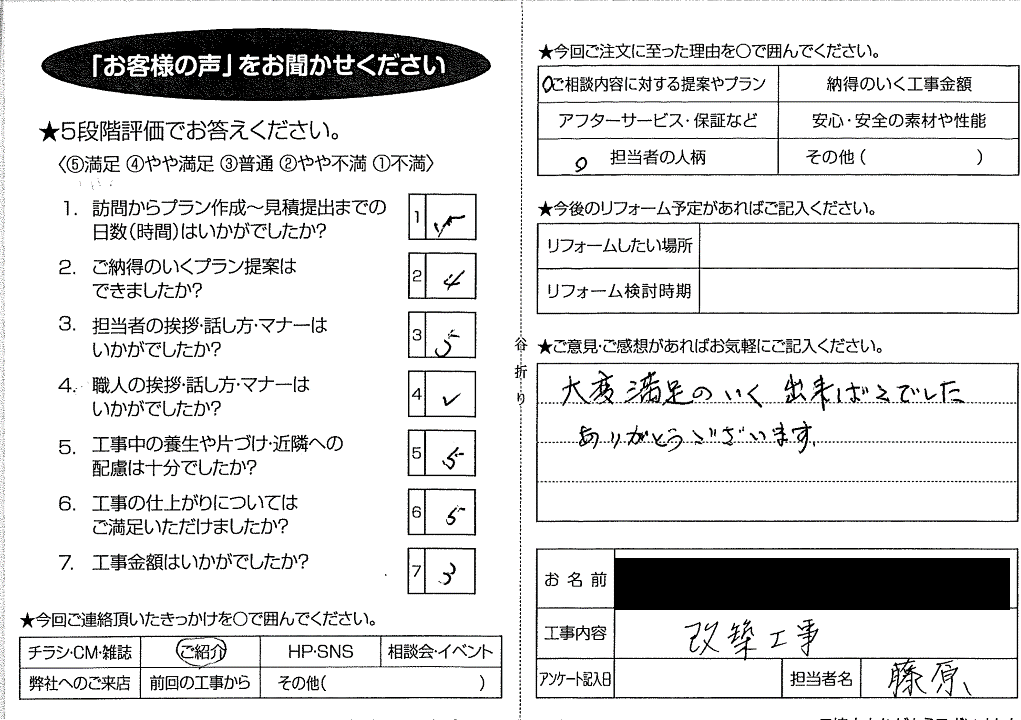 「お客様の声」をお聞かせください
★5段階評価でお答えください。
〈⑤満足 ④やや満足 ③普通 ②やや不満 ①不満〉
1. 訪問からプラン作成〜見積提出までの
日数(時間)はいかがでしたか?
1
2. ご納得のいくプラン提案は
できましたか?
2 4
3. 担当者の挨拶・話し方・マナーは
いかがでしたか?
3 5
4. 職人の挨拶・話し方・マナーは
いかがでしたか?
4
5. 工事中の養生や片づけ・近隣への
配慮は十分でしたか?
5 5
6. 工事の仕上がりについては
ご満足いただけましたか?
6 5
7. 工事金額はいかがでしたか?
7 3
★今回ご連絡頂いたきっかけを○で囲んでください。
チラシ・CM・雑誌 ご紹介 HP・SNS 相談会・イベント
弊社へのご来店 前回の工事から その他( )
谷折り
★今回ご注文に至った理由を○で囲んでください。
ご相談内容に対する提案やプラン 納得のいく工事金額
アフターサービス・保証など 安心・安全の素材や性能
担当者の人柄 その他( )
★今後のリフォーム予定があればご記入ください。
リフォームしたい場所
リフォーム検討時期
★ご意見・ご感想があればお気軽にご記入ください。
大変満足のいく出来ばえでした
ありがとうございます。
お名前
工事内容 改築工事
アンケート記入日 担当者名 藤原